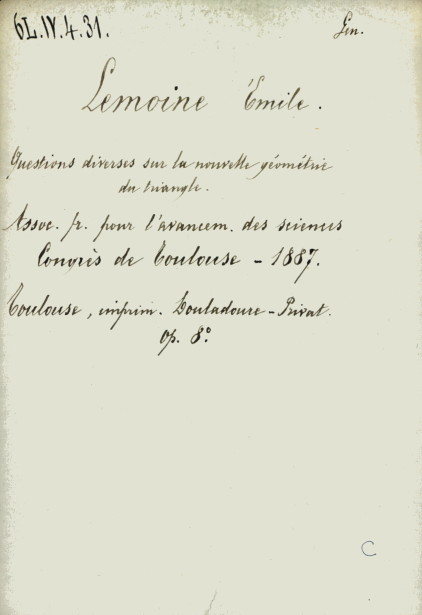 6L.IV.4.31. Gen.
Lemoine Émile.
Questions diverses sur la nouvelle géométrie
du triangle.
Assoc. fr. pour l'avancem. des sciences
Congrès de Toulouse - 1887.
Toulouse, imprim. Douladoure-Privat.
Op. 8.°
C